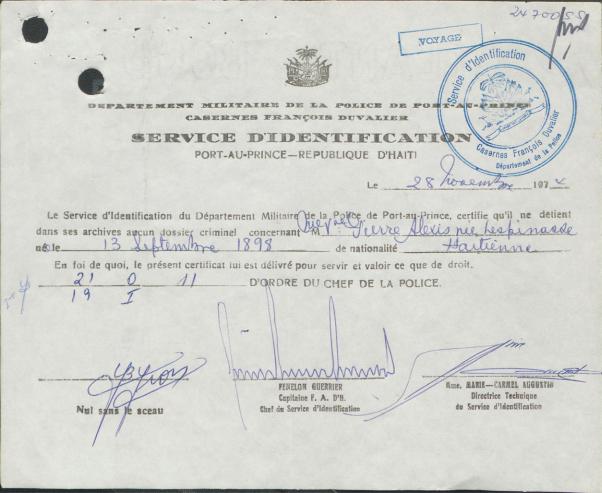 2470055
VOYAGE
Service d'Identification
Casernes François Duvalier
Département de la Police
DEPARTEMENT MILITAIRE DE LA POLICE DE PORT-AU-PRINCE
CASERNES FRANÇOIS DUVALIER
SERVICE D'IDENTIFICATION
PORT-AU-PRINCE—REPUBLIQUE D'HAITI
Le 28 Novembre 1974
Le Service d'Identification du Département Militaire de la Police de Port-au-Prince, certifie qu'il ne détient
dans ses archives aucun dossier criminel concernant M Pierre Alexis née Lespinasse
né le 13 Septembre 1898 de nationalité Haïtienne
En foi de quoi, le présent certificat lui est délivré pour servir et valoir ce que de droit.
21 0 11 D'ORDRE DU CHEF DE LA POLICE.
19 I
Nul sans le sceau
FENELON GUERRIER
Capitaine F. A. D'H.
Chef du Service d'Identification
Mme. MARIE-CARMEL AUGUSTIN
Directrice Technique
du Service d'Identification